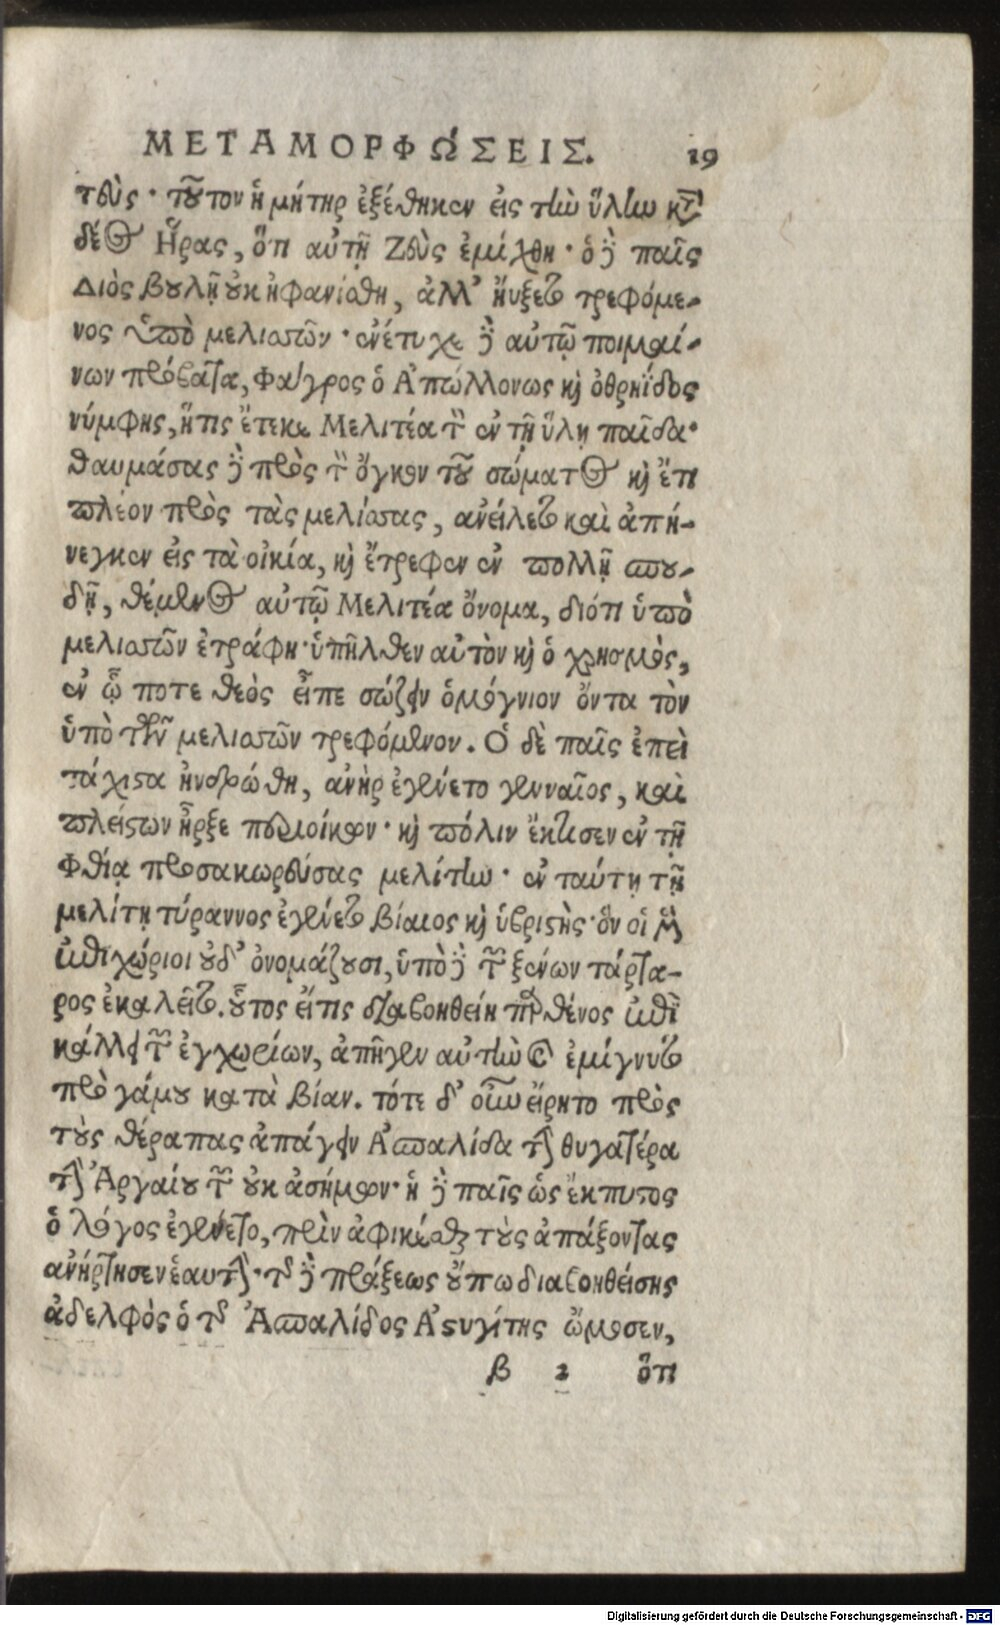 ΜΕΤΑΜΟΡΦΏΣΕΙΣ. 19
τεὺς· τοῦτον ἡ μήτηρ ἐξέθηκεν εἰς τὴν ὕλην κτ̀
δέος Ἥρας, ὅτι αὐτῇ Ζεὺς ἐμίχθη· ὁ δὲ παῖς
Διὸς βουλῇ οὐκ ἠφανίσθη, ἀλλ' ηὔξετο τρεφόμε-
νος ὑπὸ μελισσῶν· ἐνέτυχε δὲ αὐτῷ ποιμαί-
νων πρόβατα, Φάγρος ὁ Ἀπώλλονως καὶ ὀθρηΐδος
νύμφης, ἥτις ἔτεκε Μελιτέα τὸν ἐν τῇ ὕλῃ παῖδα·
θαυμάσας δὲ πρὸς τὸν ὄγκον τοῦ σώματος καὶ ἔτι
πλέον πρὸς τὰς μελίσσας, ἀνείλετο καὶ ἀπή-
νεγκεν εἰς τὰ οἰκία, καὶ ἔτρεφεν ἐν πολλῇ σπου-
δῇ, θέμενος αὐτῷ Μελιτέα ὄνομα, διότι ὑπὸ
μελισσῶν ἐτράφη· ὑπῆλθεν αὐτὸν καὶ ὁ χρησμὸς,
ἐν ᾧ ποτε θεὸς εἶπε σώζειν ὁμόγνιον ὄντα τὸν
ὑπὸ τῶν μελισσῶν τρεφόμενον. Ὁ δὲ παῖς ἐπεὶ
τάχιστα ἠνδρώθη, ἀνὴρ ἐγένετο γενναῖος, καὶ
πλείστων ἦρξε περιοίκων· καὶ πόλιν ἔκτισεν ἐν τῇ
Φθίᾳ προσαγορεύσας μελίτην· ἐν ταύτῃ τῇ
μελίτῃ τύραννος ἐγένετο βίαιος καὶ ὑβριστὴς· ὃν οἱ μὲν
ἐπιχώριοι οὐδ' ὀνομάζουσι, ὑπὸ δὲ τῶν ξένων τάρτα-
ρος ἐκαλεῖτο. οὗτος εἴ τις διαβοηθείη παρθένος ἐπὶ
κάλλει τῶν ἐγχωρίων, ἀπῆγεν αὐτὴν καὶ ἐμίγνυτο
πρὸ γάμου κατὰ βίαν. τότε δ' οὖν εἴρητο πρὸς
τοὺς θέραπας ἀπάγειν Ἀσπαλίδα τὴν θυγατέρα
τὴν Ἀργαίου τῶν οὐκ ἀσήμων· ἡ δὲ παῖς ὡς ἔκπυστος
ὁ λόγος ἐγένετο, πρὶν ἀφικέσθαι τοὺς ἀπάξοντας
ἀνήρτησεν ἑαυτήν· τῆς δὲ πράξεως οὔπω διαβοηθείσης
ἀδελφὸς ὁ τῆς Ἀσπαλίδος Ἀστυγίτης ὤμοσεν,
β 2 ὅτι
Digitalisierung gefördert durch die Deutsche Forschungsgemeinschaft - DFG